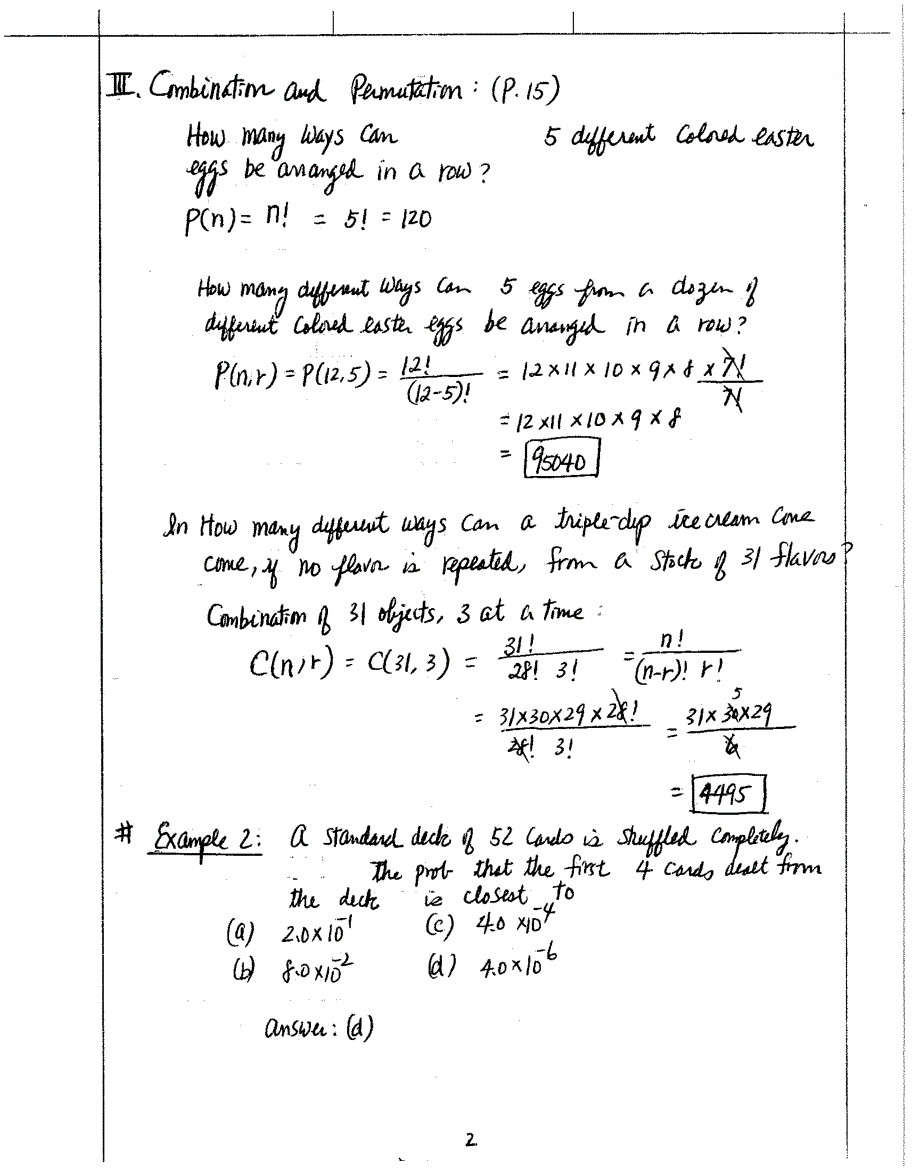 III. Combination and Permutation: (P.15)
How many ways can 5 different colored easter
eggs be arranged in a row?
P(n) = n! = 5! = 120
How many different ways can 5 eggs from a dozen of
different colored easter eggs be arranged in a row?
P(n,r) = P(12,5) = 12! / (12-5)! = 12 × 11 × 10 × 9 × 8 × 7! / 7!
= 12 × 11 × 10 × 9 × 8
= 95040
In How many different ways can a triple-dip ice cream cone
come, if no flavor is repeated, from a stock of 31 flavors?
Combination of 31 objects, 3 at a time:
C(n,r) = C(31,3) = 31! / 28! 3! = n! / (n-r)! r!
= 31×30×29×28! / 28! 3! = 31×30×29 / 6 5
= 4495
# Example 2: A standard deck of 52 cards is shuffled completely.
The prob that the first 4 cards dealt from
the deck is closest to
(a) 2.0×10⁻¹ (c) 4.0×10⁻⁴
(b) 8.0×10⁻² (d) 4.0×10⁻⁶
answer: (d)
2